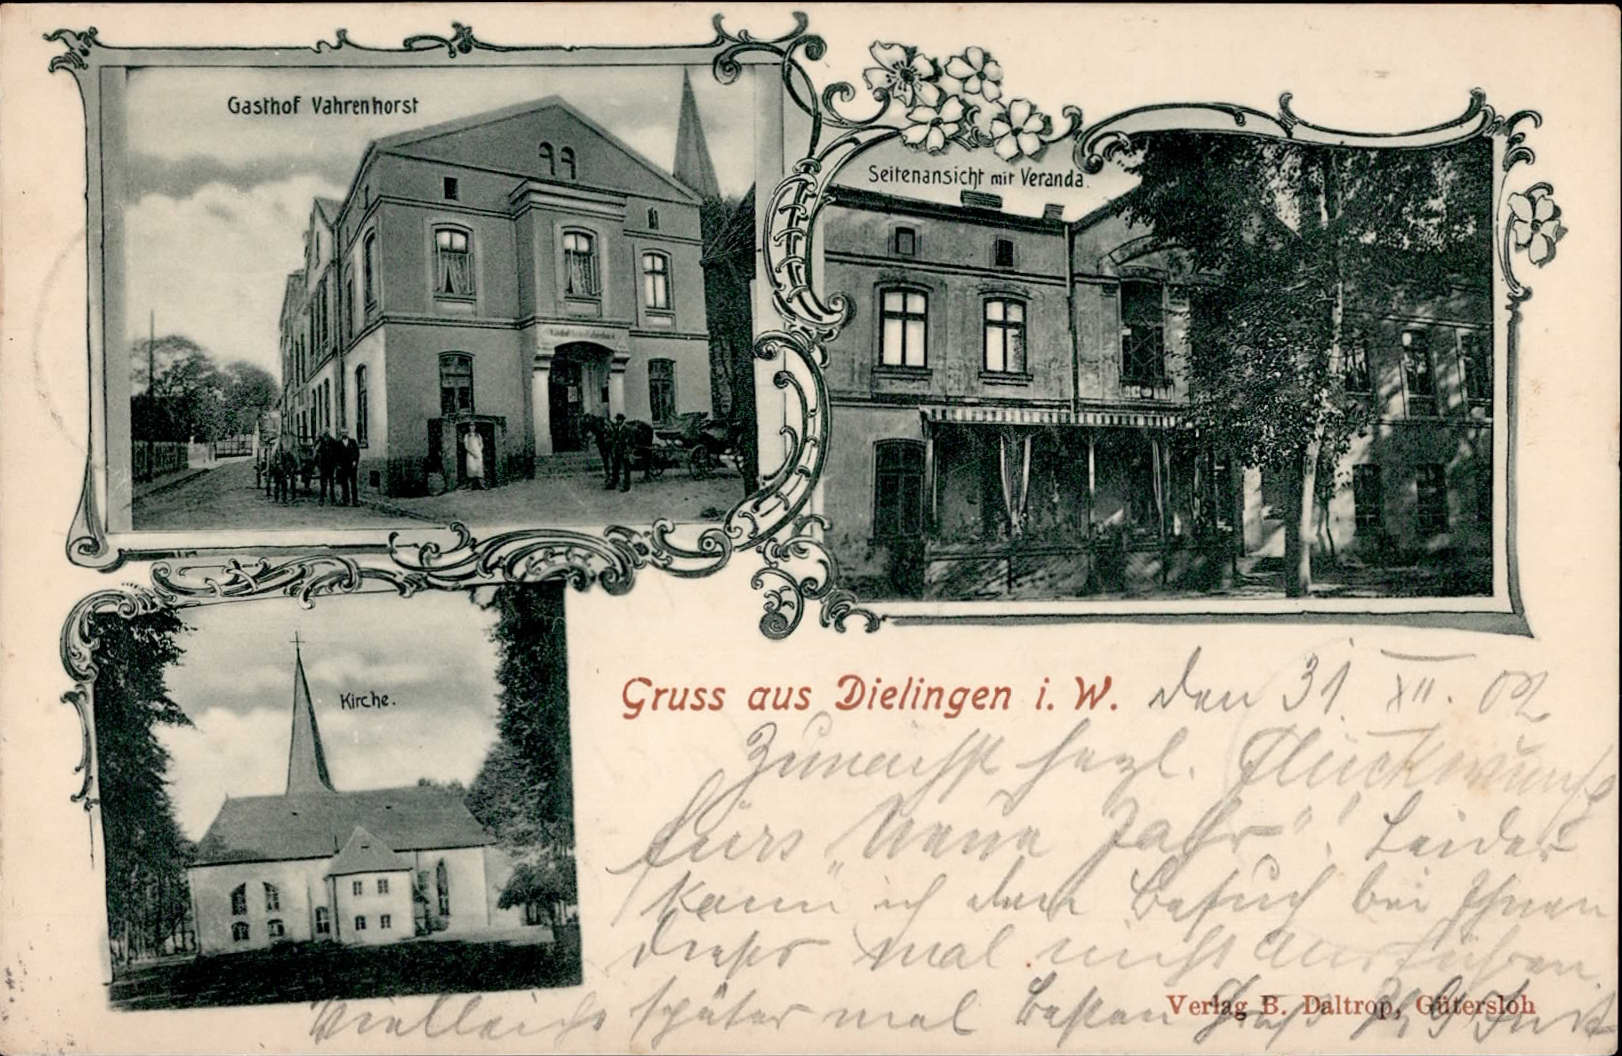 Gasthof Vahrenhorst
Seitenansicht mit Veranda.
Kirche.
Gruss aus Dielingen i. W.
den 31. XII. 02
Zunächst herzl. Glückwunsch
fürs "Neue Jahr"! Leider
kann ich den Besuch bei Ihnen
dieses mal nicht ausführen
Vielleicht später mal Besten Gruß
Verlag B. Daltrop, Gütersloh